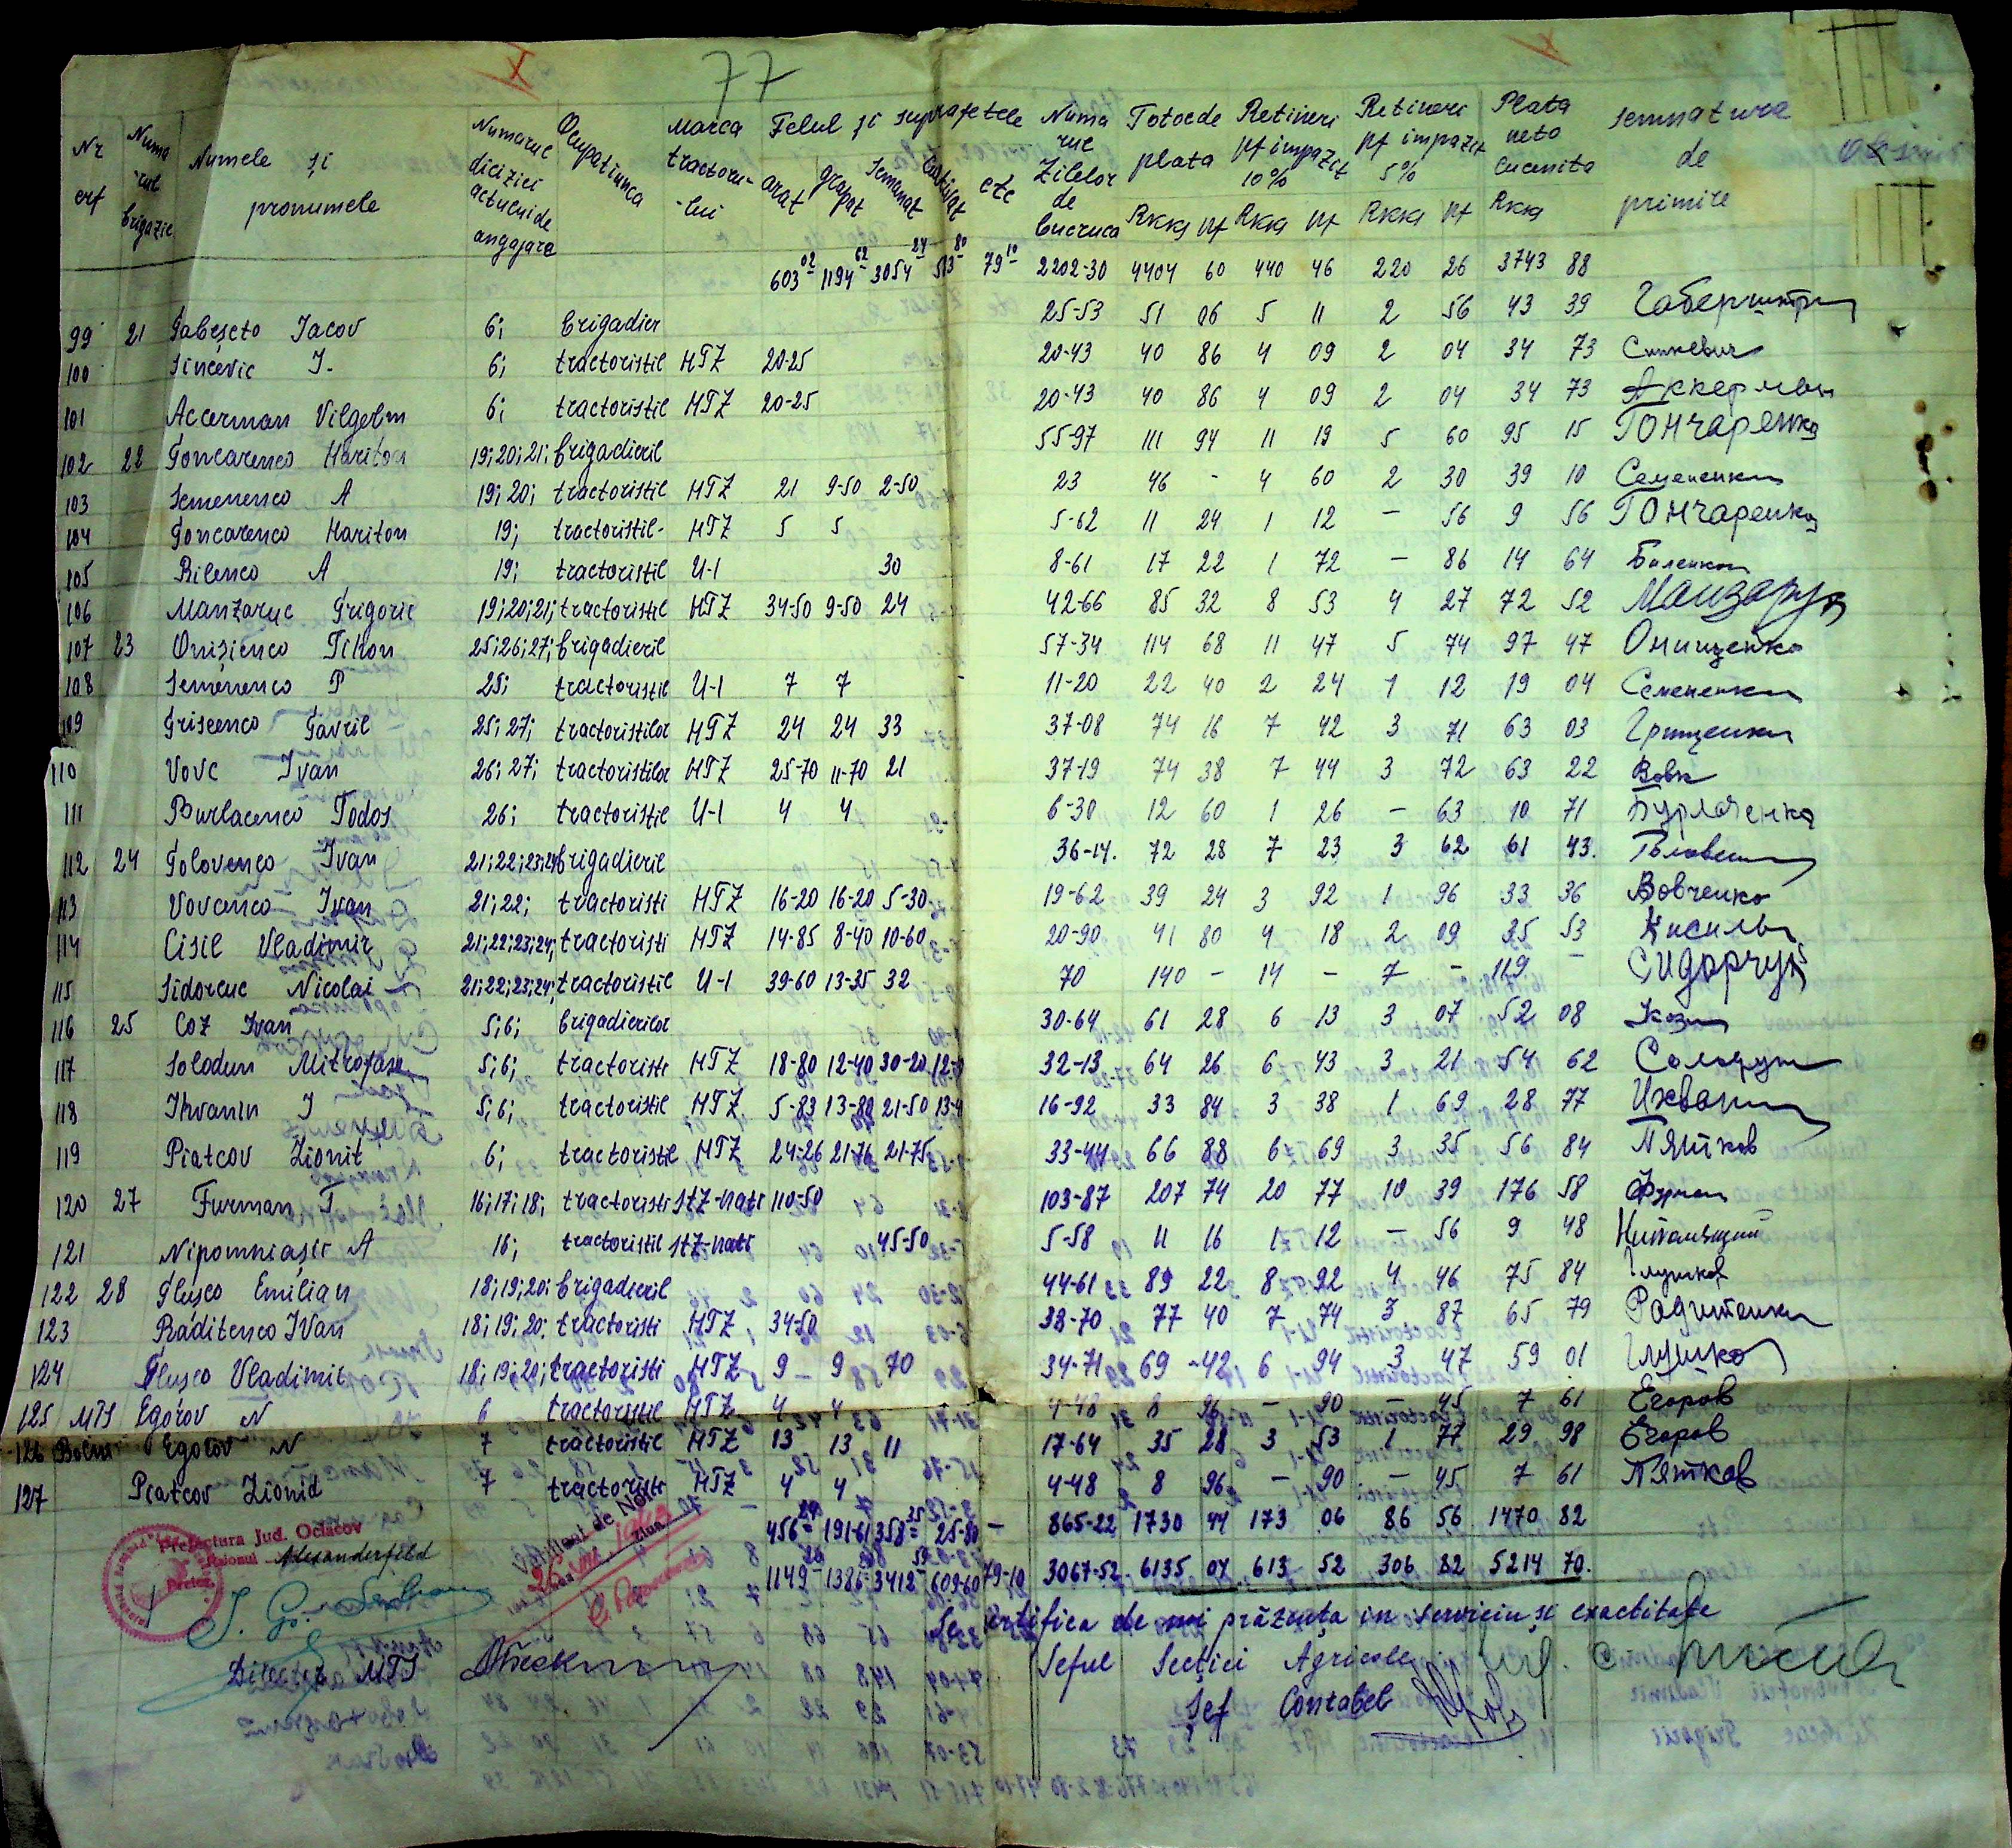 77
Nr crf Numa rul brigazic Numele și pronumele Numarul dicizici actului de angajare Ocupatiunea Marca tractoru-lui Felul și suprafetele arat grapat Semanat Cultivat etc Numa rul Zilelor de lucruca Totoc de plata Rkks pf Retineri pt impazit 10% Rkks pf Retineri pt impazit 5% Rkks pf Plata neto cucenita Rkks semnatura de primire
603 02 1194 62 3054 24 513 80 79 10 2202-30 4404 60 440 46 220 26 3743 88
99 21 Gabeșcto Iacov 6; brigadier 25-53 51 06 5 11 2 56 43 39
100 Sincevic I. 6; tractoristil HTZ 20-25 20-43 40 86 4 09 2 04 34 73 Синкевич
101 Accerman Vilgelm 6; tractoristil HTZ 20-25 20-43 40 86 4 09 2 04 34 73 Аккерман
102 22 Goncarenco Hariton 19; 20; 21; brigadieril 55-97 111 94 11 19 5 60 95 15 Гончаренко
103 Semenenco A 19; 20; tractoristil HTZ 21 9-50 2-50 23 46 - 4 60 2 30 39 10 Семененко
104 Goncarenco Hariton 19; tractoristil- HTZ 5 5 5-62 11 24 1 12 - 56 9 56 Гончаренко
105 Bilenco A 19; tractoristil U-1 30 8-61 17 22 1 72 - 86 14 64 Биленко
106 Manzaruc Grigorie 19; 20; 21; tractoristil HTZ 34-50 9-50 24 42-66 85 32 8 53 4 27 72 52 Манзарук
107 23 Onișienco Tihon 25; 26; 27; brigadieril 57-34 114 68 11 47 5 74 97 47 Онищенко
108 Semenenco P 25; tractoristil U-1 7 7 11-20 22 40 2 24 1 12 19 04 Семененко
109 Griscenco Gavril 25; 27; tractoristilor HTZ 24 24 33 37-08 74 16 7 42 3 71 63 03 Грищенко
110 Vovc Ivan 26; 27; tractoristilor HTZ 25-70 11-70 21 37-19 74 38 7 44 3 72 63 22 Вовк
111 Burlacenco Todos 26; tractoristil U-1 4 4 6-30 12 60 1 26 - 63 10 71 Бурлаченко
112 24 Golovenco Ivan 21; 22; 23; 24 brigadieril 36-14. 72 28 7 23 3 62 61 43.
113 Vovcenco Ivan 21; 22; tractoristi HTZ 16-20 16-20 5-30 19-62 39 24 3 92 1 96 33 36 Вовченко
114 Cisil Vladimir 21; 22; 23; 24; tractoristi HTZ 14-85 8-40 10-60 20-90 41 80 4 18 2 09 35 53 Кисиль
115 Sidorcuc Nicolai 21; 22; 23; 24; tractoristil U-1 39-60 13-35 32 70 140 - 14 - 7 - 119 - Сидорчук
116 25 Coz Ivan 5; 6; brigadierilor 30-64 61 28 6 13 3 07 52 08
117 Solodun Mitrofan 5; 6; tractoristi HTZ 18-80 12-40 30-20 32-13 64 26 6 43 3 21 54 62 Солодун
118 Ihvanin I 5; 6; tractoristil HTZ 5-83 13-80 21-50 16-92 33 84 3 38 1 69 28 77 Ихванин
119 Piatcov Lionit 6; tractoristil HTZ 24-26 21-76 21-75 33-44 66 88 6 69 3 35 56 84 Пятков
120 27 Furman T 16; 17; 18; tractoristi STZ-nati 110-50 103-87 207 74 20 77 10 39 176 58 Фурман
121 Nipomniașii A 16; tractoristil STZ-nati 45-50 5-58 11 16 1 12 - 56 9 48
122 28 Glușco Emilian 18; 19; 20; brigadieril 44-61 89 22 8 92 4 46 75 84 Глушков
123 Raditenco Ivan 18; 19; 20; tractoristi HTZ 34-50 38-70 77 40 7 74 3 87 65 79 Радитенко
124 Glușco Vladimir 18; 19; 20; tractoristi HTZ 9 - 9 70 34-71 69 -42 6 94 3 47 59 01 Глушко
125 MTS Egorov N 6 tractoristil HTZ 4 4 4-48 8 96 - 90 - 45 7 61 Егоров
126 Egorov N 7 tractoristil HTZ 13 13 11 17-64 35 28 3 53 1 77 29 98 Егоров
127 Piatcov Lionid 7 tractoristi HTZ 4 4 4-48 8 96 - 90 - 45 7 61 Пятков
456 191-61 358 35 25-80 - 865-22 1730 44 173 06 86 56 1470 82
1149 1386 3412 609-60 79-10 3067-52. 6135 04 613 52 306 82 5214 70.
Prefectura Jud. Oceacov
Raionul Alexanderfeld
Pretor
Se certifica de noi prăzența in serviciu și exactitate
Director MTS
Seful Secției Agricole
Șef Contabel